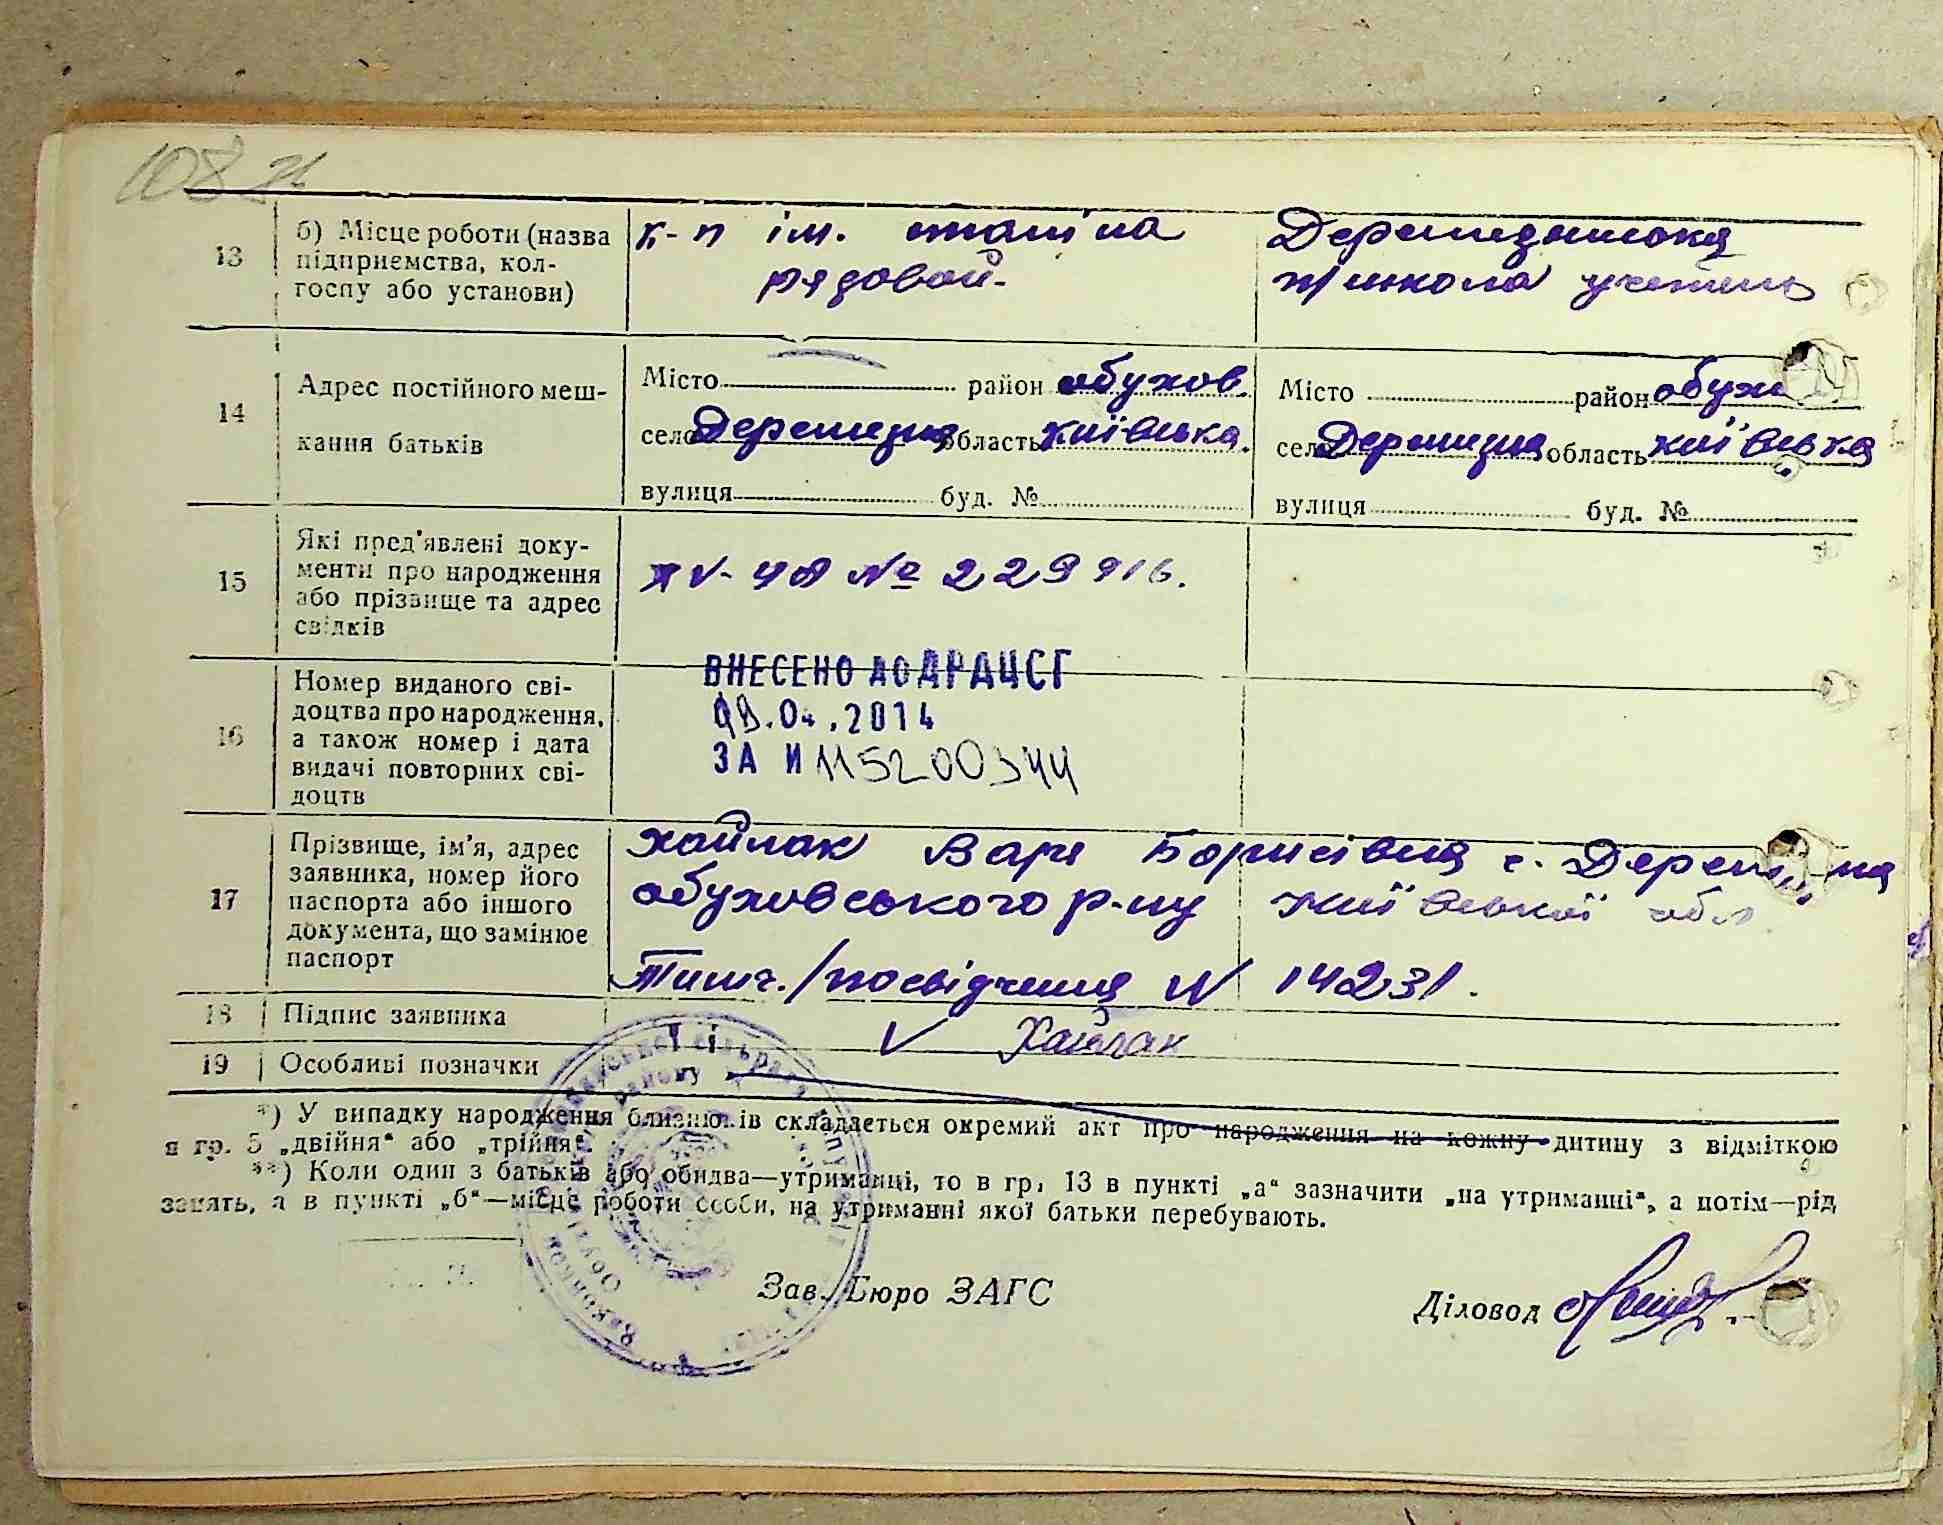 108
13
б) Місце роботи (назва
підприємства, кол-
госпу або установи)
к-п ім. сталіна
рядовой.
школа учитель
14
Адрес постійного меш-
кання батьків
Місто район обухов.
село Деремезна область київська.
вулиця буд. №
Місто район обухи
село Деремезна область київська
вулиця буд. №
15
Які пред'явлені доку-
менти про народження
або прізвище та адрес
свідків
№ 229916.
16
Номер виданого сві-
доцтва про народження,
а також номер і дата
видачі повторних сві-
доцтв
ВНЕСЕНО ДО ДРАЦСГ
.04.2014
ЗА И 115200344
17
Прізвище, ім'я, адрес
заявника, номер його
паспорта або іншого
документа, що замінює
паспорт
Хайлак Варя Борисівна с. Деремезна
обуховського р-ну київської обл
Тимч./посвідчення N 14231.
18
Підпис заявника
V Хайлак
19
Особливі позначки
*) У випадку народження близнюків складається окремий акт про народження на кожну дитину з відміткою
в гр. 5 „двійня“ або „трійня“.
**) Коли один з батьків або обидва—утриманці, то в гр. 13 в пункті „а“ зазначити „на утриманні“, а потім—рід
занять, а в пункті „б“—місце роботи особи, на утриманні якої батьки перебувають.
Зав. Бюро ЗАГС
Діловод